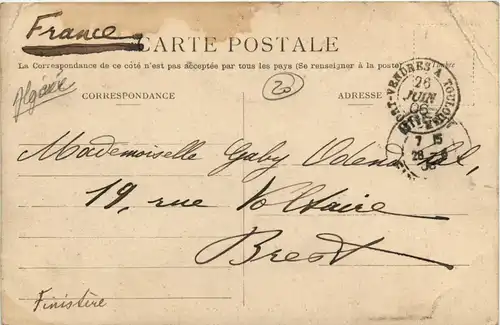 France
CARTE POSTALE
La Correspondance de ce côté n'est pas acceptée par tous les pays (Se renseigner à la poste)
Timbre
Algérie
CORRESPONDANCE
20
ADRESSE
PORT-VENDRES A
26
JUIN
06
7 15
28
06
Mademoiselle Gaby
19, rue Voltaire
Brest
Finistère